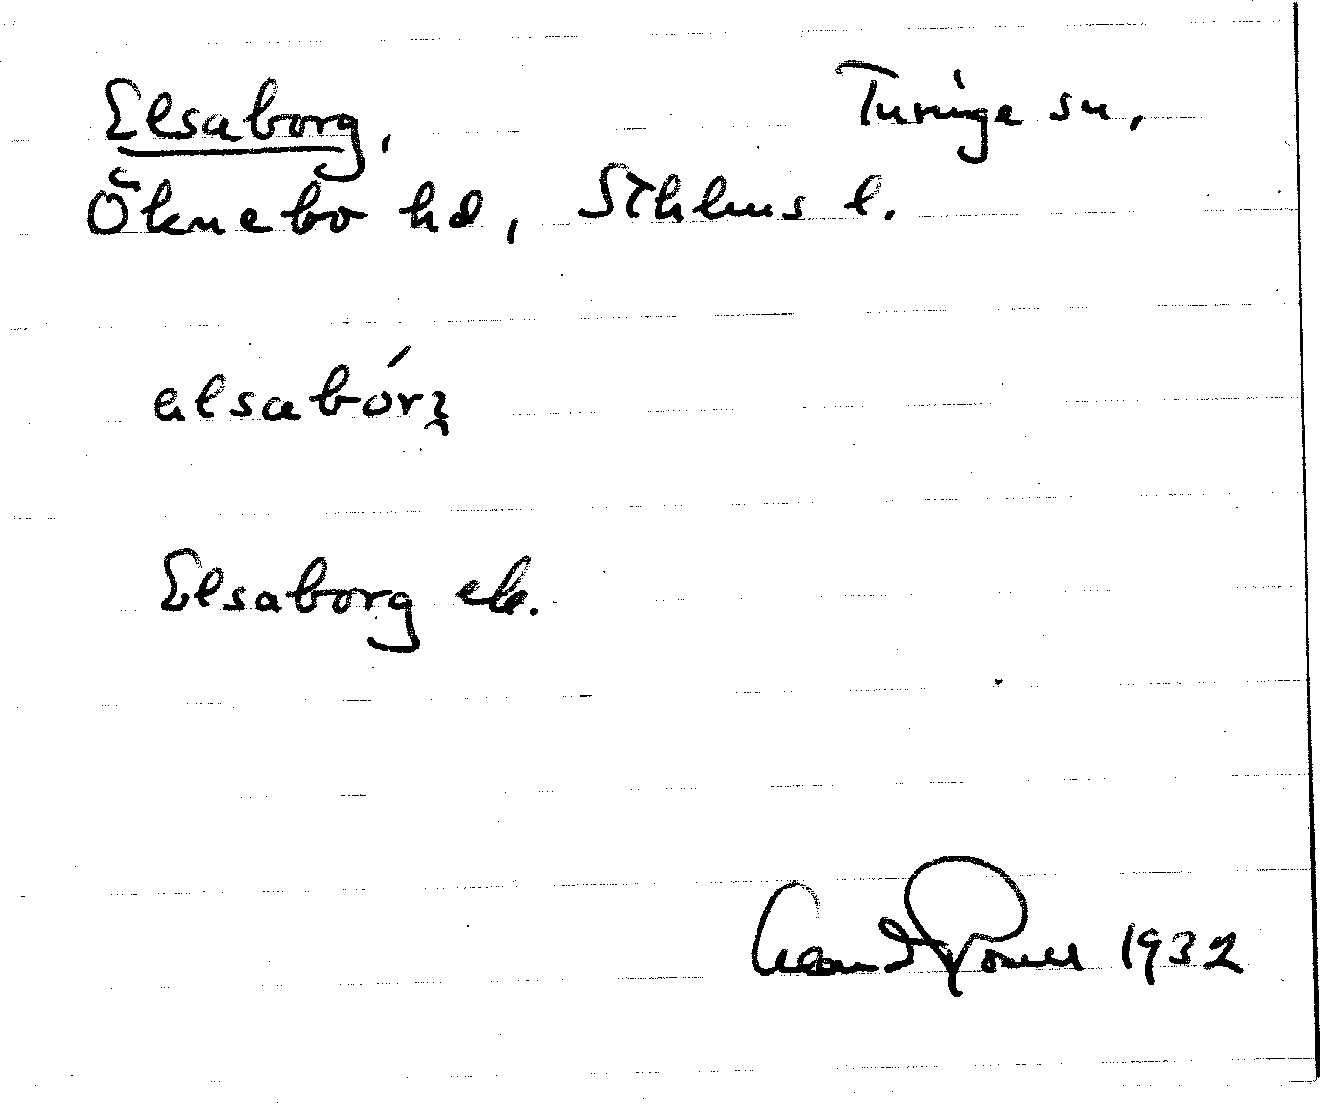 Elsaborg, Turinge sn,
Öknebo hd, Sthlms l.
elsabórg
Elsaborg ek.
1932